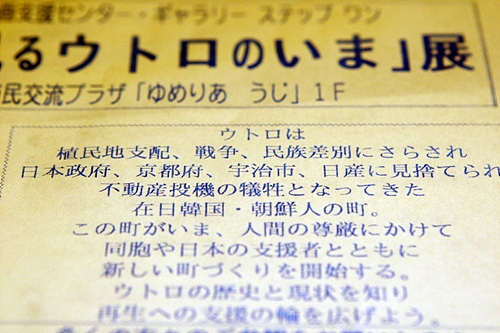 画支援センター・ギャラリー ステップ ワン
るウトロのいま」展
民交流プラザ「ゆめりあ うじ」１Ｆ
ウトロは
植民地支配、戦争、民族差別にさらされ
日本政府、京都府、宇治市、日産に見捨てられ
不動産投機の犠牲となってきた
在日韓国・朝鮮人の町。
この町がいま、人間の尊厳にかけて
同胞や日本の支援者とともに
新しい町づくりを開始する。
ウトロの歴史と現状を知り
再生への支援の輪を広げよう。